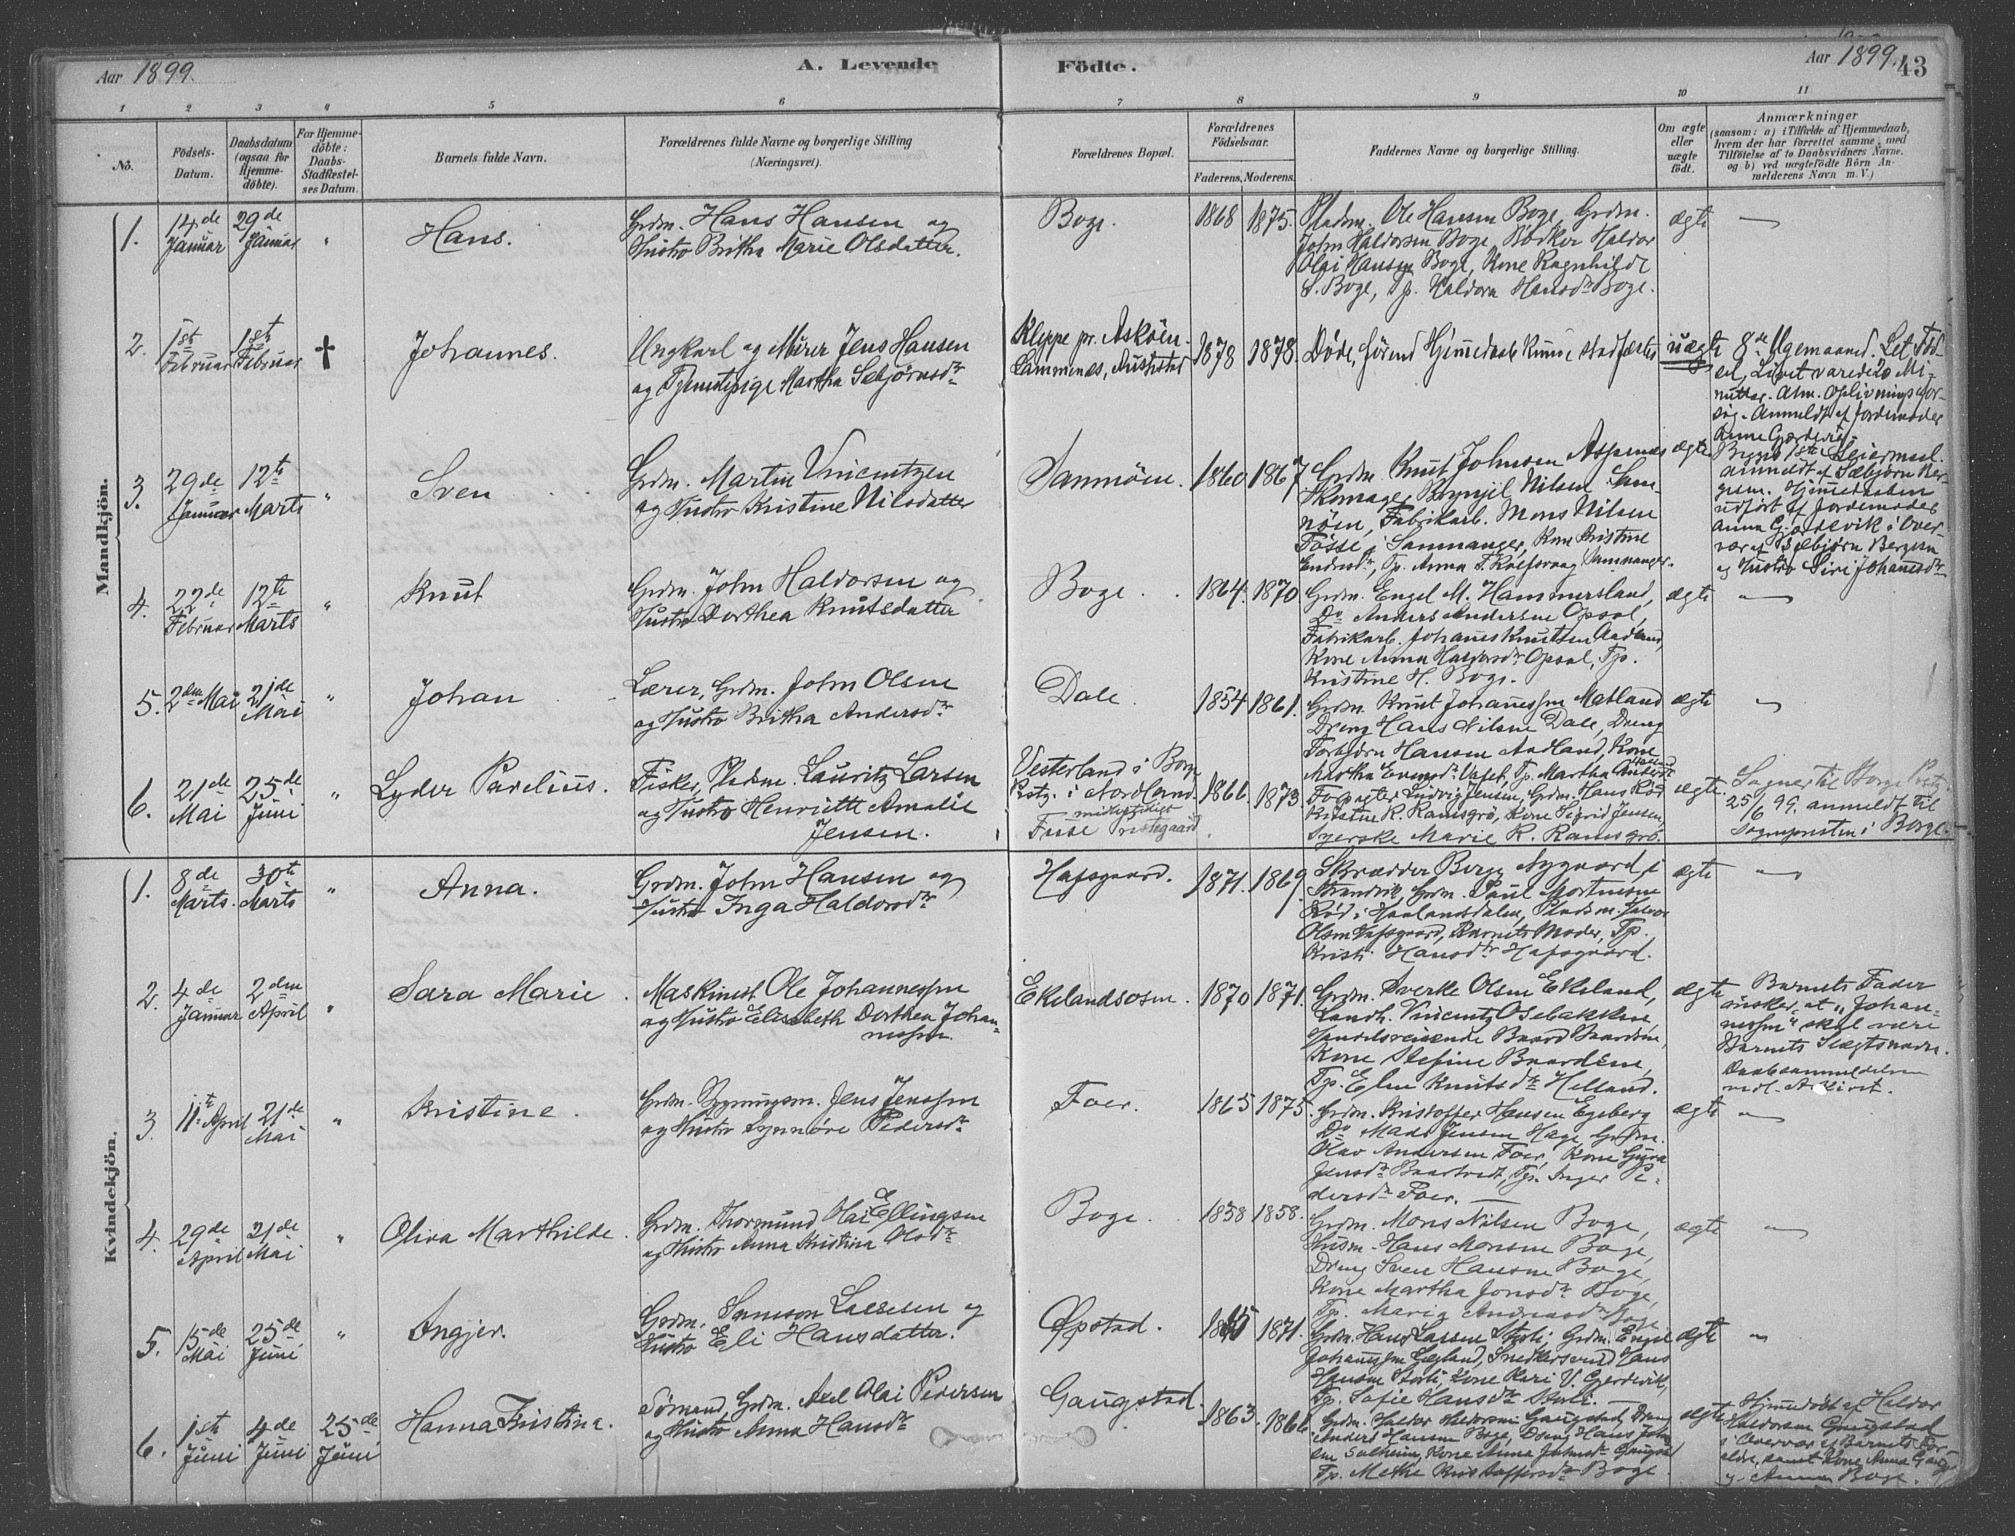 Aar 1899.
A. Levende
Födte.
Aar 1899.
43
1 2 3 4 5 6 7 8 9 10 11
No.
Födsels-Datum.
Daabsdatum (ogsaa for Hjemme-döbte).
For Hjemme-döbte: Daabs-Stadfæstel-ses Datum.
Barnets fulde Navn.
Forældrenes fulde Navne og borgerlige Stilling (Næringsvei).
Forældrenes Bopæl.
Forældrenes Födselsaar.
Faderens. Moderens.
Faddernes Navne og borgerlige Stilling.
Om ægte eller uægte födt.
Anmærkninger
(saasom: a) i Tilfælde af Hjemmedaab,
hvem der har forrettet samme, med
Tilföielse af to Daabsvidners Navne.
og b) ved uægtefödte Börn An-
melderens Navn m. V.)
Mandkjön.
1. 14de Januar 29de Januar " Hans.
Grdm. Hans Hansen og
Hustro Britha Marie Olsdatter.
Boge. 1868 1875.
Pladsm. Ole Hansen Boge, Grdm.
John Haldorsen Boge, Bödker Haldor
Olai Hansen Boge, Kone Ragnhilde
S. Boge, Tp. Haldora Hansdr Boge.
ægte —
2. 1ste Februar 1ste Februar † Johannes.
Ungkarl og Murer Jens Hansen
og Tjenestepige Martha Sebjörnsdr
Kleppe pr. Asköen.
1878 1878.
Döde, förend Hjemmedaab kunne stadfæstes
uægte
8de Ugemaaned. Let Föd-
sel, Livet varede 10 Mi-
nutter. Alm. Oplivningsfor-
sög. Anmeldt af Jordemoder
Anna Gjærdevik.
Begges 1ste Leiermaal.
anmeldt af Sæbjörn Ber-
gesen. Hjemmedaaben
udfört af Jordemoder
Anna Gjærdevik i Over-
vær af Sæbjörn Bergesen
og Hustro Siri Johannesdr
3. 29de Januar 12te Marts " Sven
Grdm. Martin Vincentzen
og Hustro Kristine Nilsdatter
Samnöen. 1860 1867
Grdm. Knut Johnsen Aspenes
Skomager Brynjel Nilsen Sam-
nöen, Fabrikarb. Mons Nilsen
Tösse i Sammanger, Kone Kristine
Endresdr, Tp. Anna T. Rolfsvaag Sammanger.
ægte
4. 22de Februar 12te Marts " Knut
Grdm. John Haldorsen og
Hustro Dorthea Knutsdatter
Boge. 1864. 1870
Grdm. Engel M. Hammersland,
Do Anders Andersen Opsal,
Fabrikarb. Johannes Knutsen Aadland,
Kone Anna Haldorsdr Opsal, Tp.
Kristine H. Boge.
ægte —
5. 2den Mai 21de Mai " Johan
Lærer, Grdm. John Olsen
og Hustro Britha Andersdr
Dale. 1854 1861.
Grdm. Knut Johannessen Matland
Dreng Hans Nilsen Dale, Dreng
Torbjörn Hansen Aadland, Kone
ægte —
6. 21de Mai 25de Juni " Lyder Parelius.
Fisker, Pladsm. Lauritz Larsen
og Hustro Henriette Amalie
Jensen.
Vesterland i Borge
Pstg. i Nordland.
midlertidigt
Fuse Prestegaard.
1866 1873.
Forpagter Ludvig Jensen, Grdm. Hans Röd
Kristne R. Ramsgrö, Kone Sigrid Jensen,
Syerske Marie R. Ramsgrö.
ægte.
Sogner til Borge Pstg.
25/6 99. anmeldt til
Sognepresten i Borge.
Kvindekjön.
1. 8de Marts. 30te Marts " Anna.
Grdm. John Hansen og
Hustro Inga Haldorsdr
Hafsgaard. 1871. 1869.
Skrædder Berge Nygaard i
Strandvik, Grdm. Paul Mortinesen
Röd i Haalandsdalen, Pladsm. Haldor
Olsen Hafsgaard, Barnets Moder, Tp.
Kristi Hansdr Hafsgaard.
ægte —
2. 4de Januar 2den April " Sara Marie.
Maskinist Ole Johannessen
og Hustro Elisabeth Dorthea Johan-
nessen.
Ekelandsosen. 1870 1871.
Grdm. Sverke Olsen Ekeland,
Landh. Vincentz Osebakken,
Handelsreisende Baard Baardsen,
Kone Stefine Baardsen,
Tp. Elen Knutsdr Helland.
ægte
Barnets Fader
önsker, at "Johan-
nessen" skal være
Barnets Slægtsnavn.
Daabsanmeldelsen
vedl. Arkivet.
3. 11te April 21de Mai " Kristine.
Grdm. Bygningsm. Jens Jenssen
og Hustro Synnöve Pedersdr
Foer. 1865 1875.
Grdm. Kristoffer Hansen Egeberg
Do Mads Jensen Hage, Grdm.
Olav Andersen Foer, Kone Guro
Jensdr Baartvedt, Tp. Inger Pe-
dersdr Foer.
ægte —
4. 29de April 21de Mai " Oliva Marthilde.
Grdm. Thormund Olai Ellingsen
og Hustro Anna Kristina Olsdr
Boge. 1858 1858.
Grdm. Mons Nilsen Boge,
Husm. Hans Monsen Boge,
Dreng Sven Hansen Boge,
Kone Martha Jonsdr Boge,
Tp. Maria Andreasdr Boge
ægte —
5. 15de Mai 25de Juni " Angjer.
Grdm. Samson Lassesen og
Hustro Eli Hansdatter.
Öpstad. 1871.
Grdm. Hans Lassen Störli, Grdm. Engel
Johannessen Lægland, Snedkersvend Hans
Hansen Störli, Kone Kari V. Gjerdevik,
Tp. Sofie Hansdr Störli.
ægte —
6. 1ste Juni 4de Juni 25de Juni Hanna Kristina.
Sömand, Grdm. Axel Olai Pedersen
og Hustro Anna Hansdr
Gaugstad. 1863. 1866
Grdm. Haldor Haldorsen Gaugstad, Dreng
Anders Hansen Boge, Dreng Hans John-
sen Solheim, Kone Anna Johnsdr Gaugstad
Tp. Methe Kristoffersdr Boge
ægte
Hjemmedöbt af Haldor
Haldorsen Gaugstad
i Overvær af Barnets For-
ældre, samt Kone Anna Gaugst.
og Anna Boge.